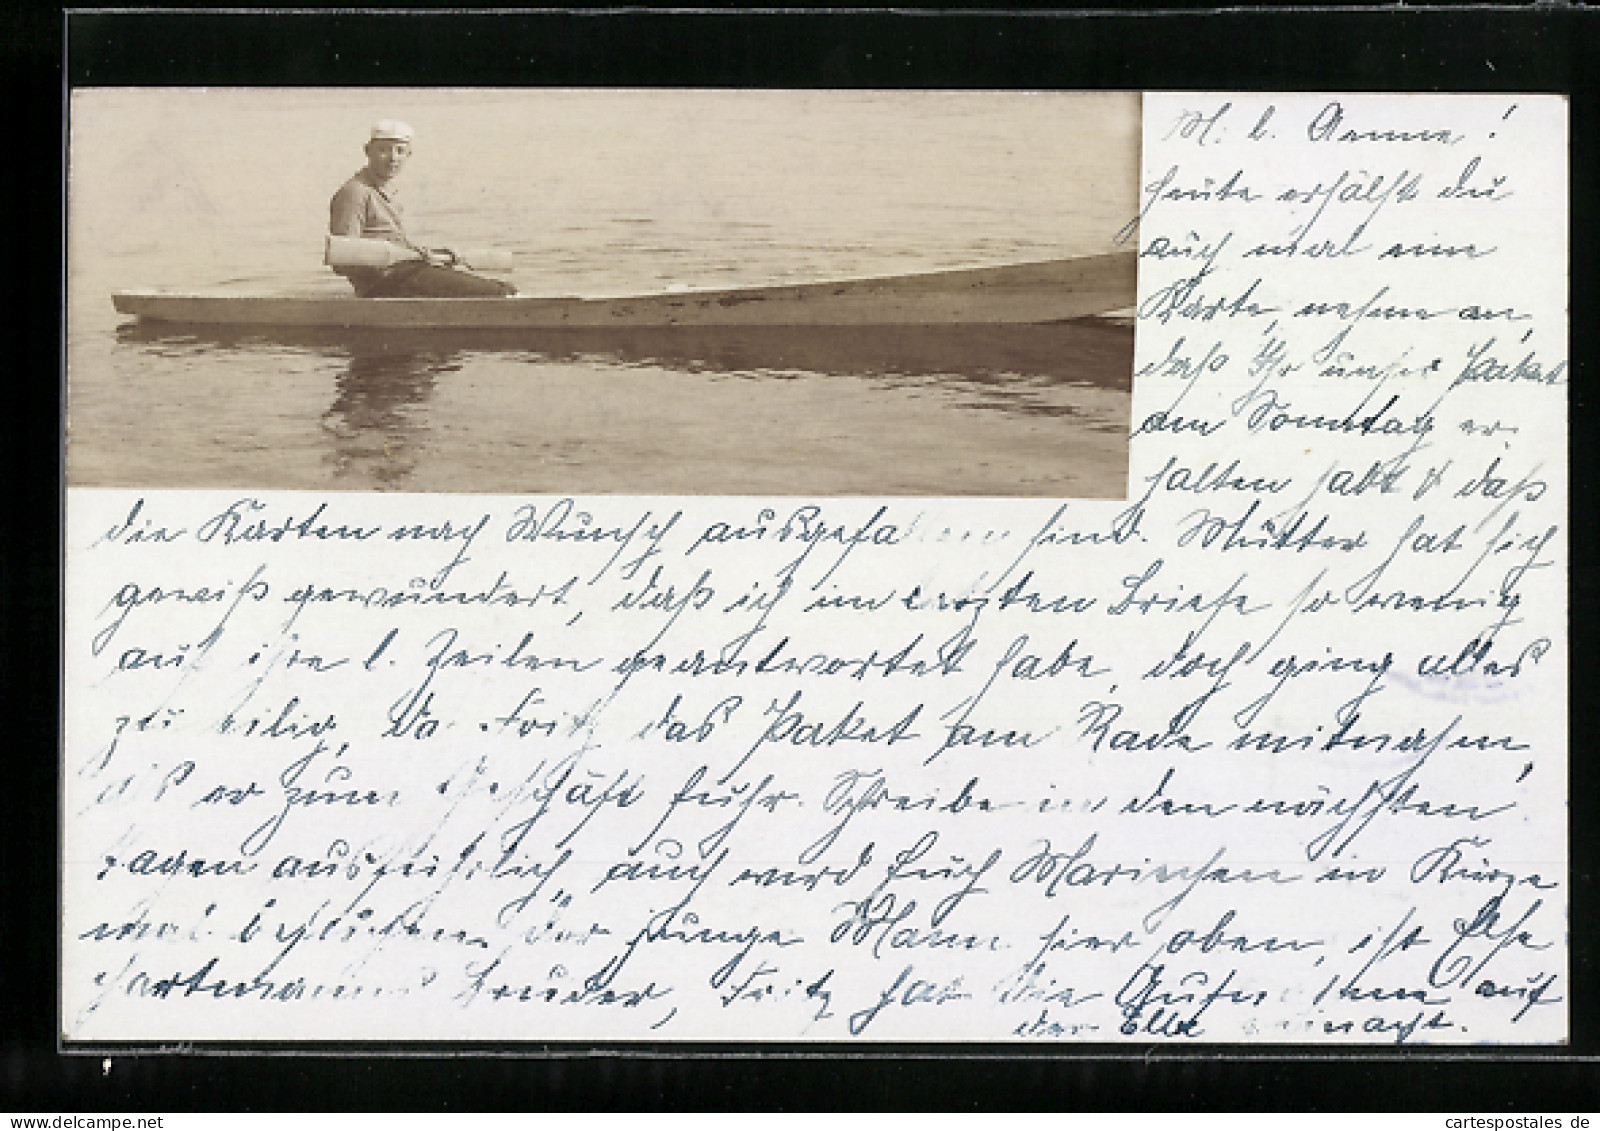 M. l. Aenne!
heute erhälst du
auch mal eine
Karte, nehme an,
daß Ihr unser Paket
am Sonntag er-
halten habt & daß
die Karten nach Wunsch ausgefallen sind. Mutter hat sich
gewiß gewundert, daß ich im letzten Briefe so wenig
auf ihre l. Zeilen geantwortet habe, doch ging alles
zu eilig, da Fritz das Paket am Rade mitnahm,
als er zum Geschäft fuhr. Schreibe in den nächsten
Tagen ausführlich, auch wird Euch Mariechen in Kürze
mal besuchen. Der junge Mann hier oben, ist Else
Hartmanns Bruder, Fritz hat die Aufnahme auf
der Elbe gemacht.
cartespostales.de